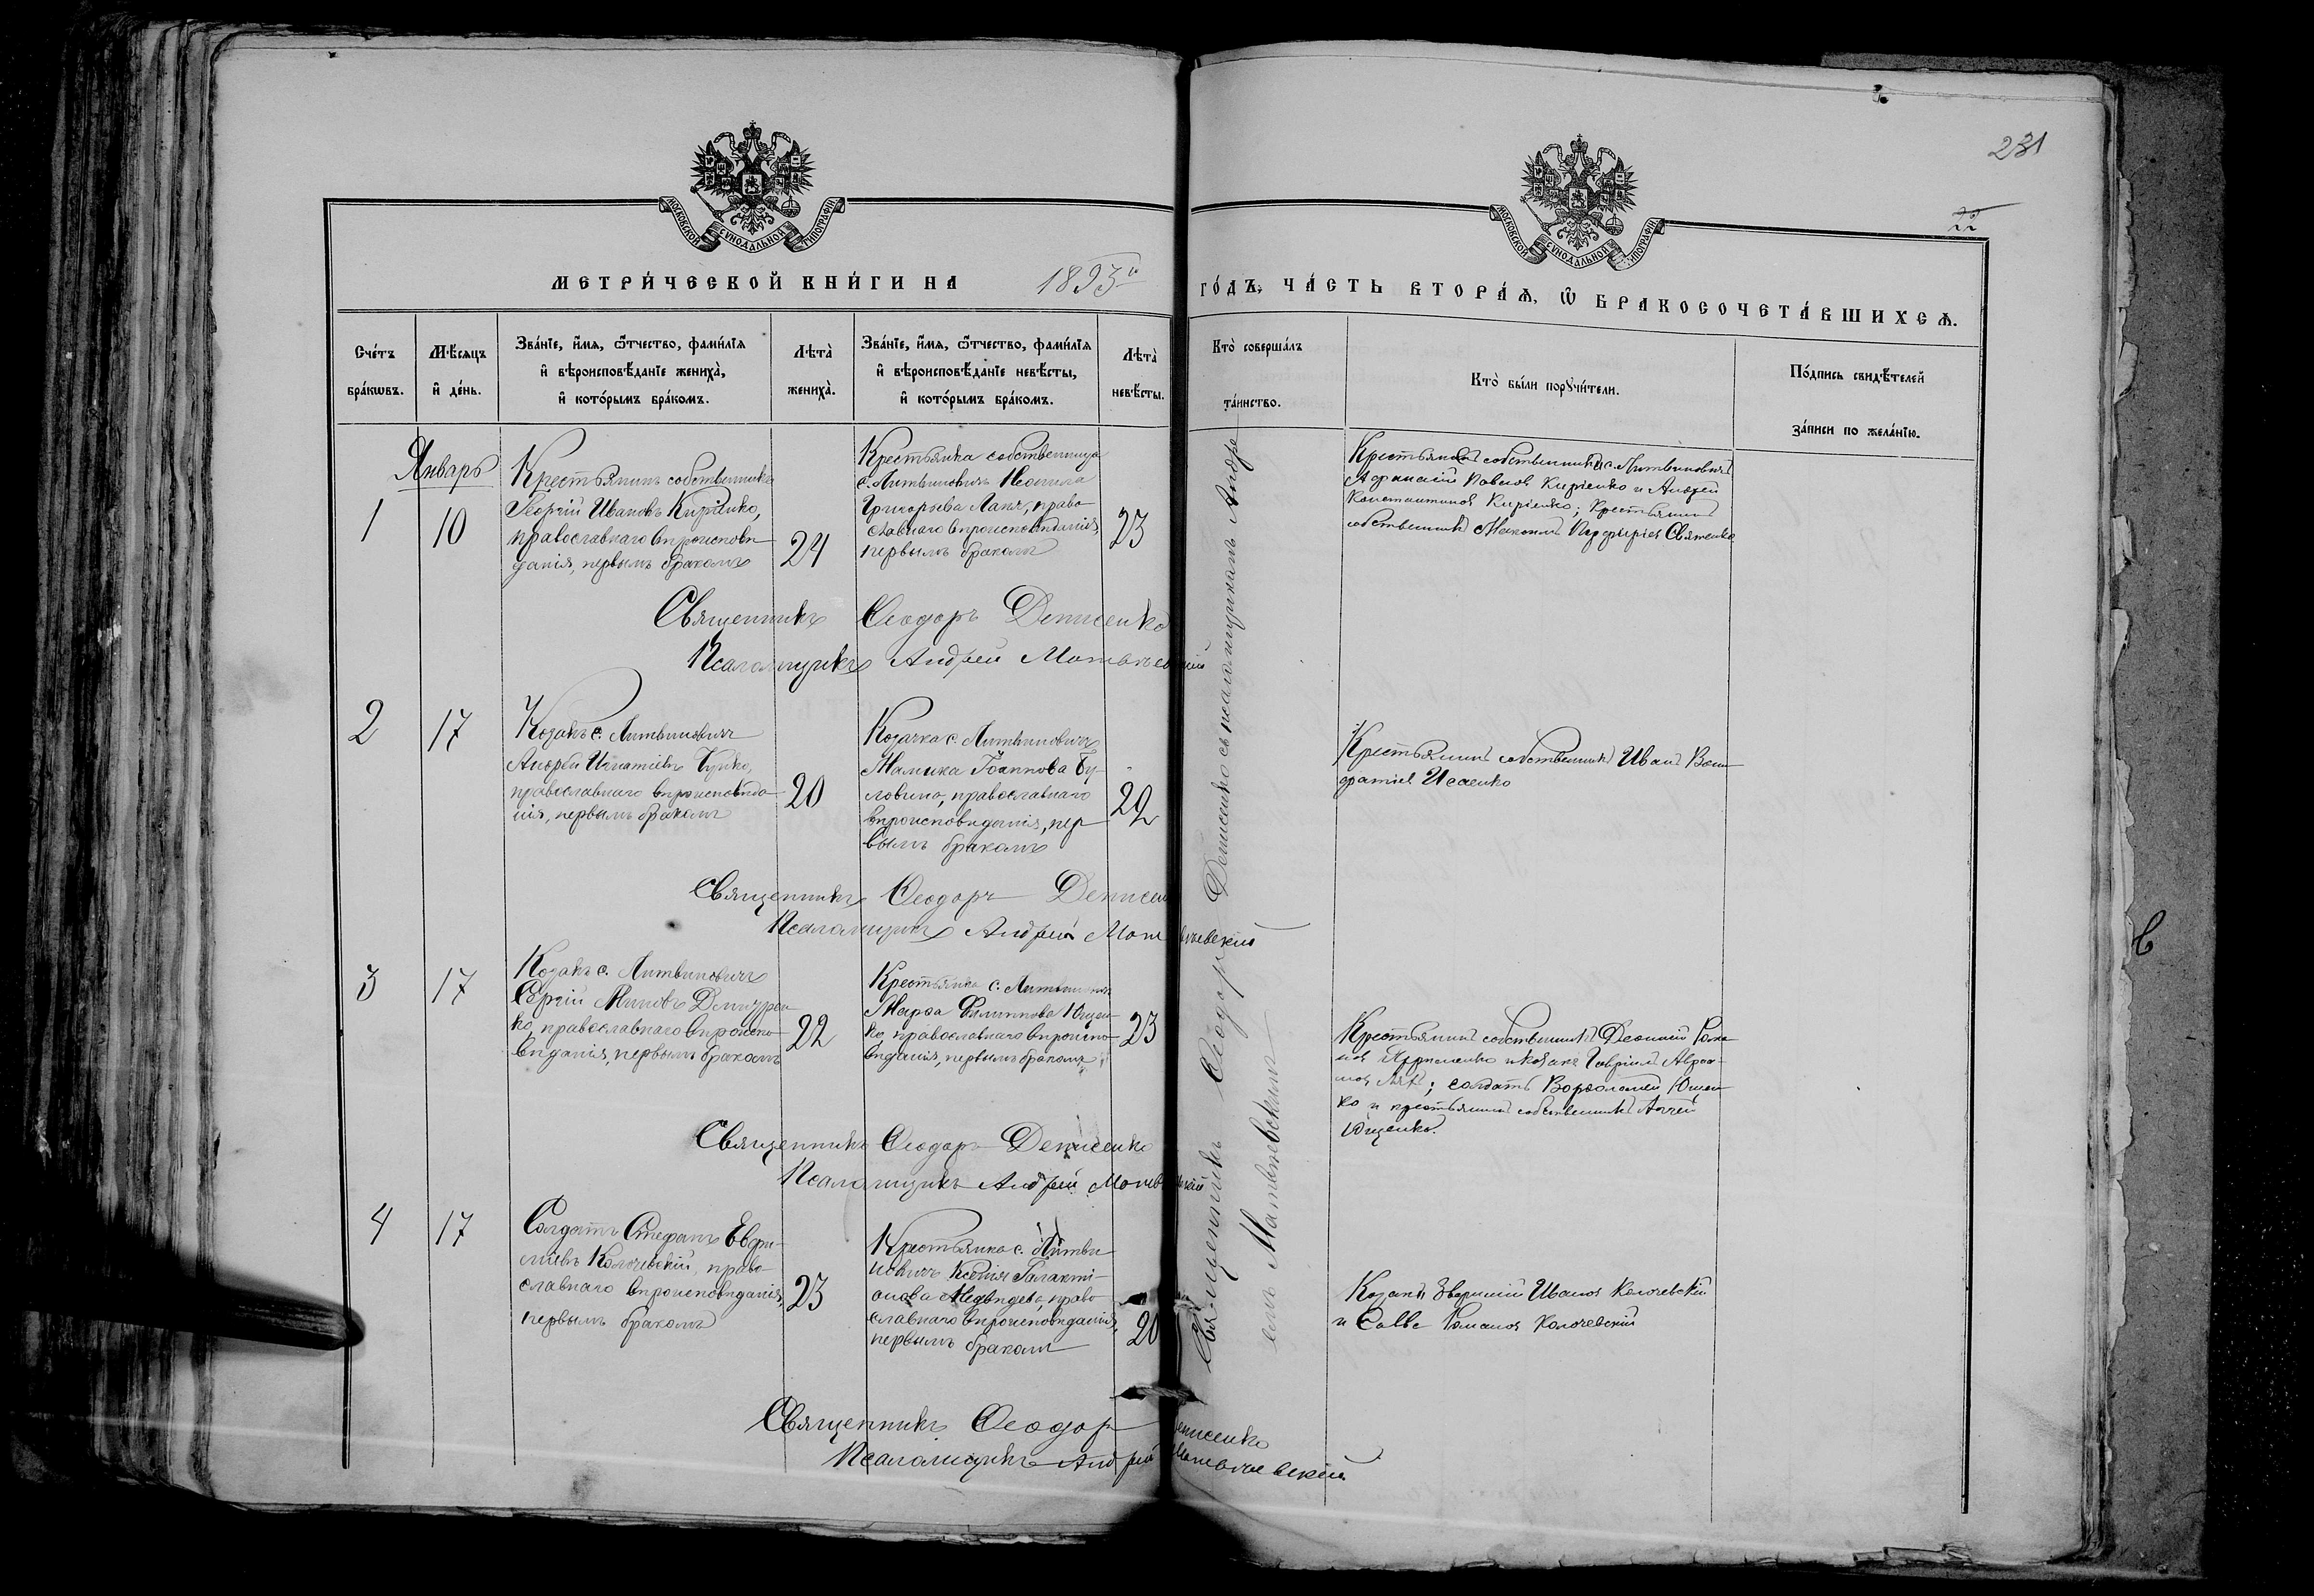 231
22
МОСКОВСКОЙ СѴНОДАЛЬНОЙ ТИПОГРАФІИ
МОСКОВСКОЙ СѴНОДАЛЬНОЙ ТИПОГРАФІИ
МЕТРИ́ЧЕСКОЙ КНИ́ГИ НА 1893й
ГО́ДЪ, ЧА́СТЬ ВТОРА́Ѧ, Ѽ БРАКОСОЧЕТА́ВШИХСѦ.
Сче́тъ
бра́кѡвъ.
Мѣ́сѧцъ
и҆ де́нь.
Зва́нїе, и҆́мѧ, ѻ҆́тчество, фами́лїѧ
и҆ вѣроисповѣ́данїе жениха̀,
и҆ кото́рымъ бра́комъ.
Лѣта̀
жениха̀.
Зва́нїе, и҆́мѧ, ѻ҆́тчество, фами́лїѧ
и҆ вѣроисповѣ́данїе невѣ́сты,
и҆ кото́рымъ бра́комъ.
Лѣта̀
невѣ́сты.
Кто̀ соверша́лъ
та́инство.
Кто̀ бы́ли порꙋчи́тели.
По́дпись свидѣ́телей
за́писи по жела́нїю.
Январь
1
10
Крестьянинъ собственникъ
Георгій Ивановъ Киріенко,
православнаго вѣроисповѣ-
данія, первымъ бракомъ
24
Крестьянка собственница
с. Литвиновичъ
Григорьева право-
славнаго вѣроисповѣданія,
первымъ бракомъ
23
Крестьяне собственники с. Литвиновичъ
Афанасій Павловъ Киріенко и Андрей
Константиновъ Киріенко; Крестьянинъ
собственникъ Порфиріевъ
Священникъ Ѳеодоръ Денисенко
Псаломщикъ Андрей Матвѣевскій
2
17
Козакъ с. Литвиновичъ
Андрей Игнатіевъ
православнаго вѣроисповѣда-
нія, первымъ бракомъ
20
Козачка с. Литвиновичъ
Іоаннова Бу-
православнаго
вѣроисповѣданія, пер-
вымъ бракомъ
22
Крестьянинъ собственникъ Иванъ
Исаенко
Священникъ Ѳеодоръ Денисенко
Псаломщикъ Андрей Матвѣевскій
3
17
Козакъ с. Литвиновичъ
Сергій
ко, православнаго вѣроиспо-
вѣданія, первымъ бракомъ
22
Крестьянка с. Литвиновичъ
Марѳа Филиппова Ющен-
ко, православнаго вѣроиспо-
вѣданія, первымъ бракомъ
23
Крестьянинъ собственникъ Рома-
новъ и козакъ Гавріилъ Авра-
мовъ солдатъ Варѳоломей Ющен-
ко и крестьянинъ собственникъ
Ющенко.
Священникъ Ѳеодоръ Денисенко
Псаломщикъ Андрей Матвѣевскій
4
17
Солдатъ Стефанъ Евфи-
міевъ Колочевскій, право-
славнаго вѣроисповѣданія,
первымъ бракомъ
23
Крестьянка с. Литви-
новичъ Ксенія Галакті-
онова Медвѣдева, право-
славнаго вѣроисповѣданія,
первымъ бракомъ
20
Козаки Иванов Колочевскій
и Савва Романов Колочевскій
Священникъ Ѳеодоръ Денисенко
Псаломщикъ Андрей Матвѣевскій
Священникъ Ѳеодоръ Денисенко съ псаломщикомъ Андре-
емъ Матвѣевскимъ